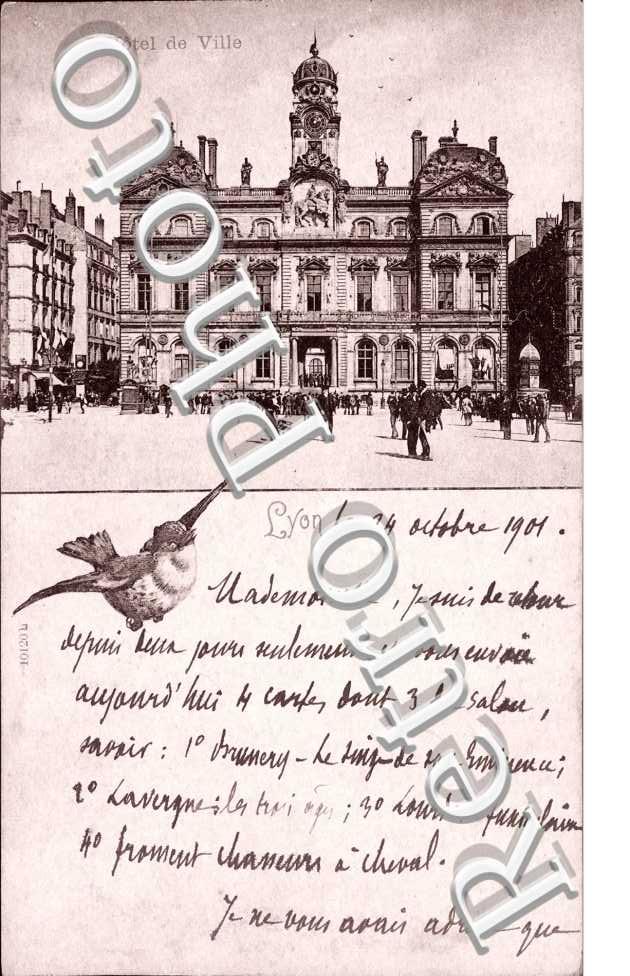 Hôtel de Ville
Photo Retro
Lyon le 24 octobre 1901.
Mademoiselle, Je suis de retour
depuis deux jours seulement vous envoie
aujourd'hui 4 cartes dont 3 Salon,
savoir : 1° Brunery - Le singe de Eminence ;
2° Lavergne : les trois âges ; 3°
4° Froment chasseurs à cheval.
Je ne vous avais que
10120